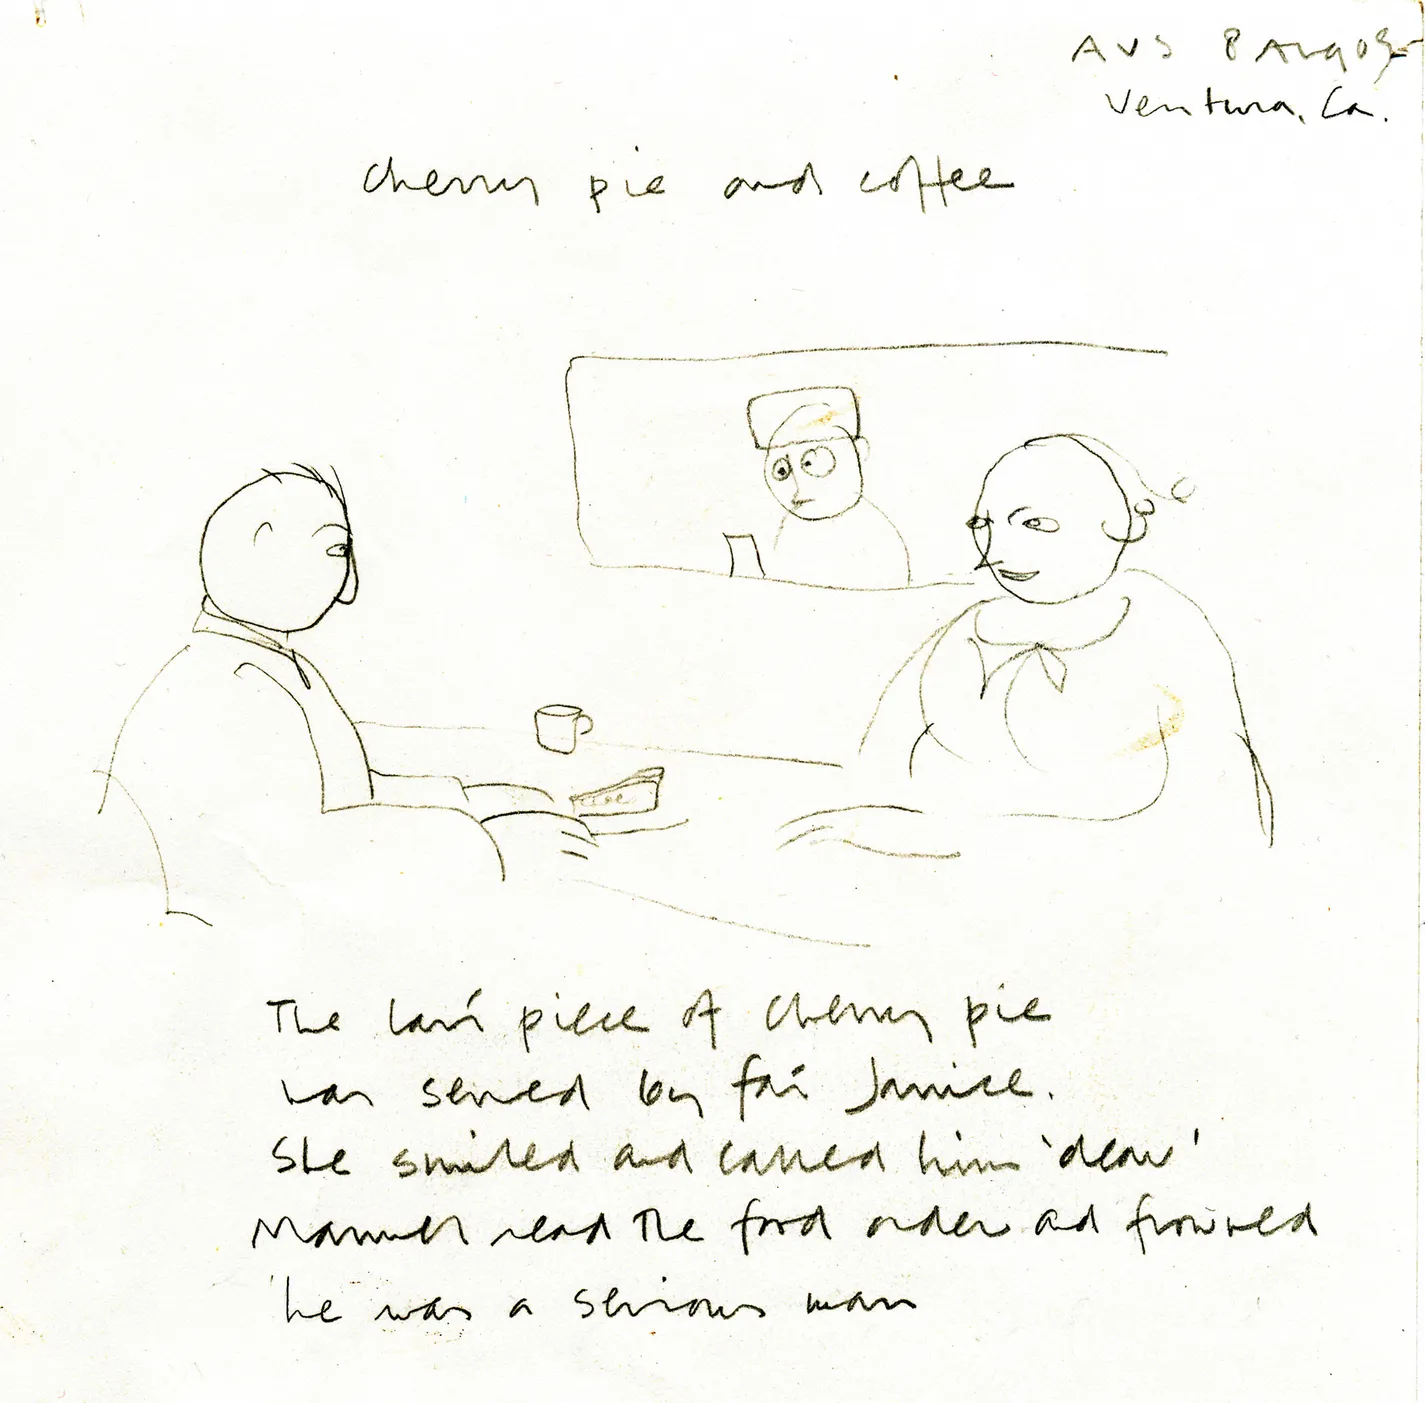 AVS 8 Aug 05
Ventura, Ca.
cherry pie and coffee
The last piece of cherry pie
was served by fair Janice.
She smiled and called him 'dear'
Manuel read the food order and frowned
he was a serious man